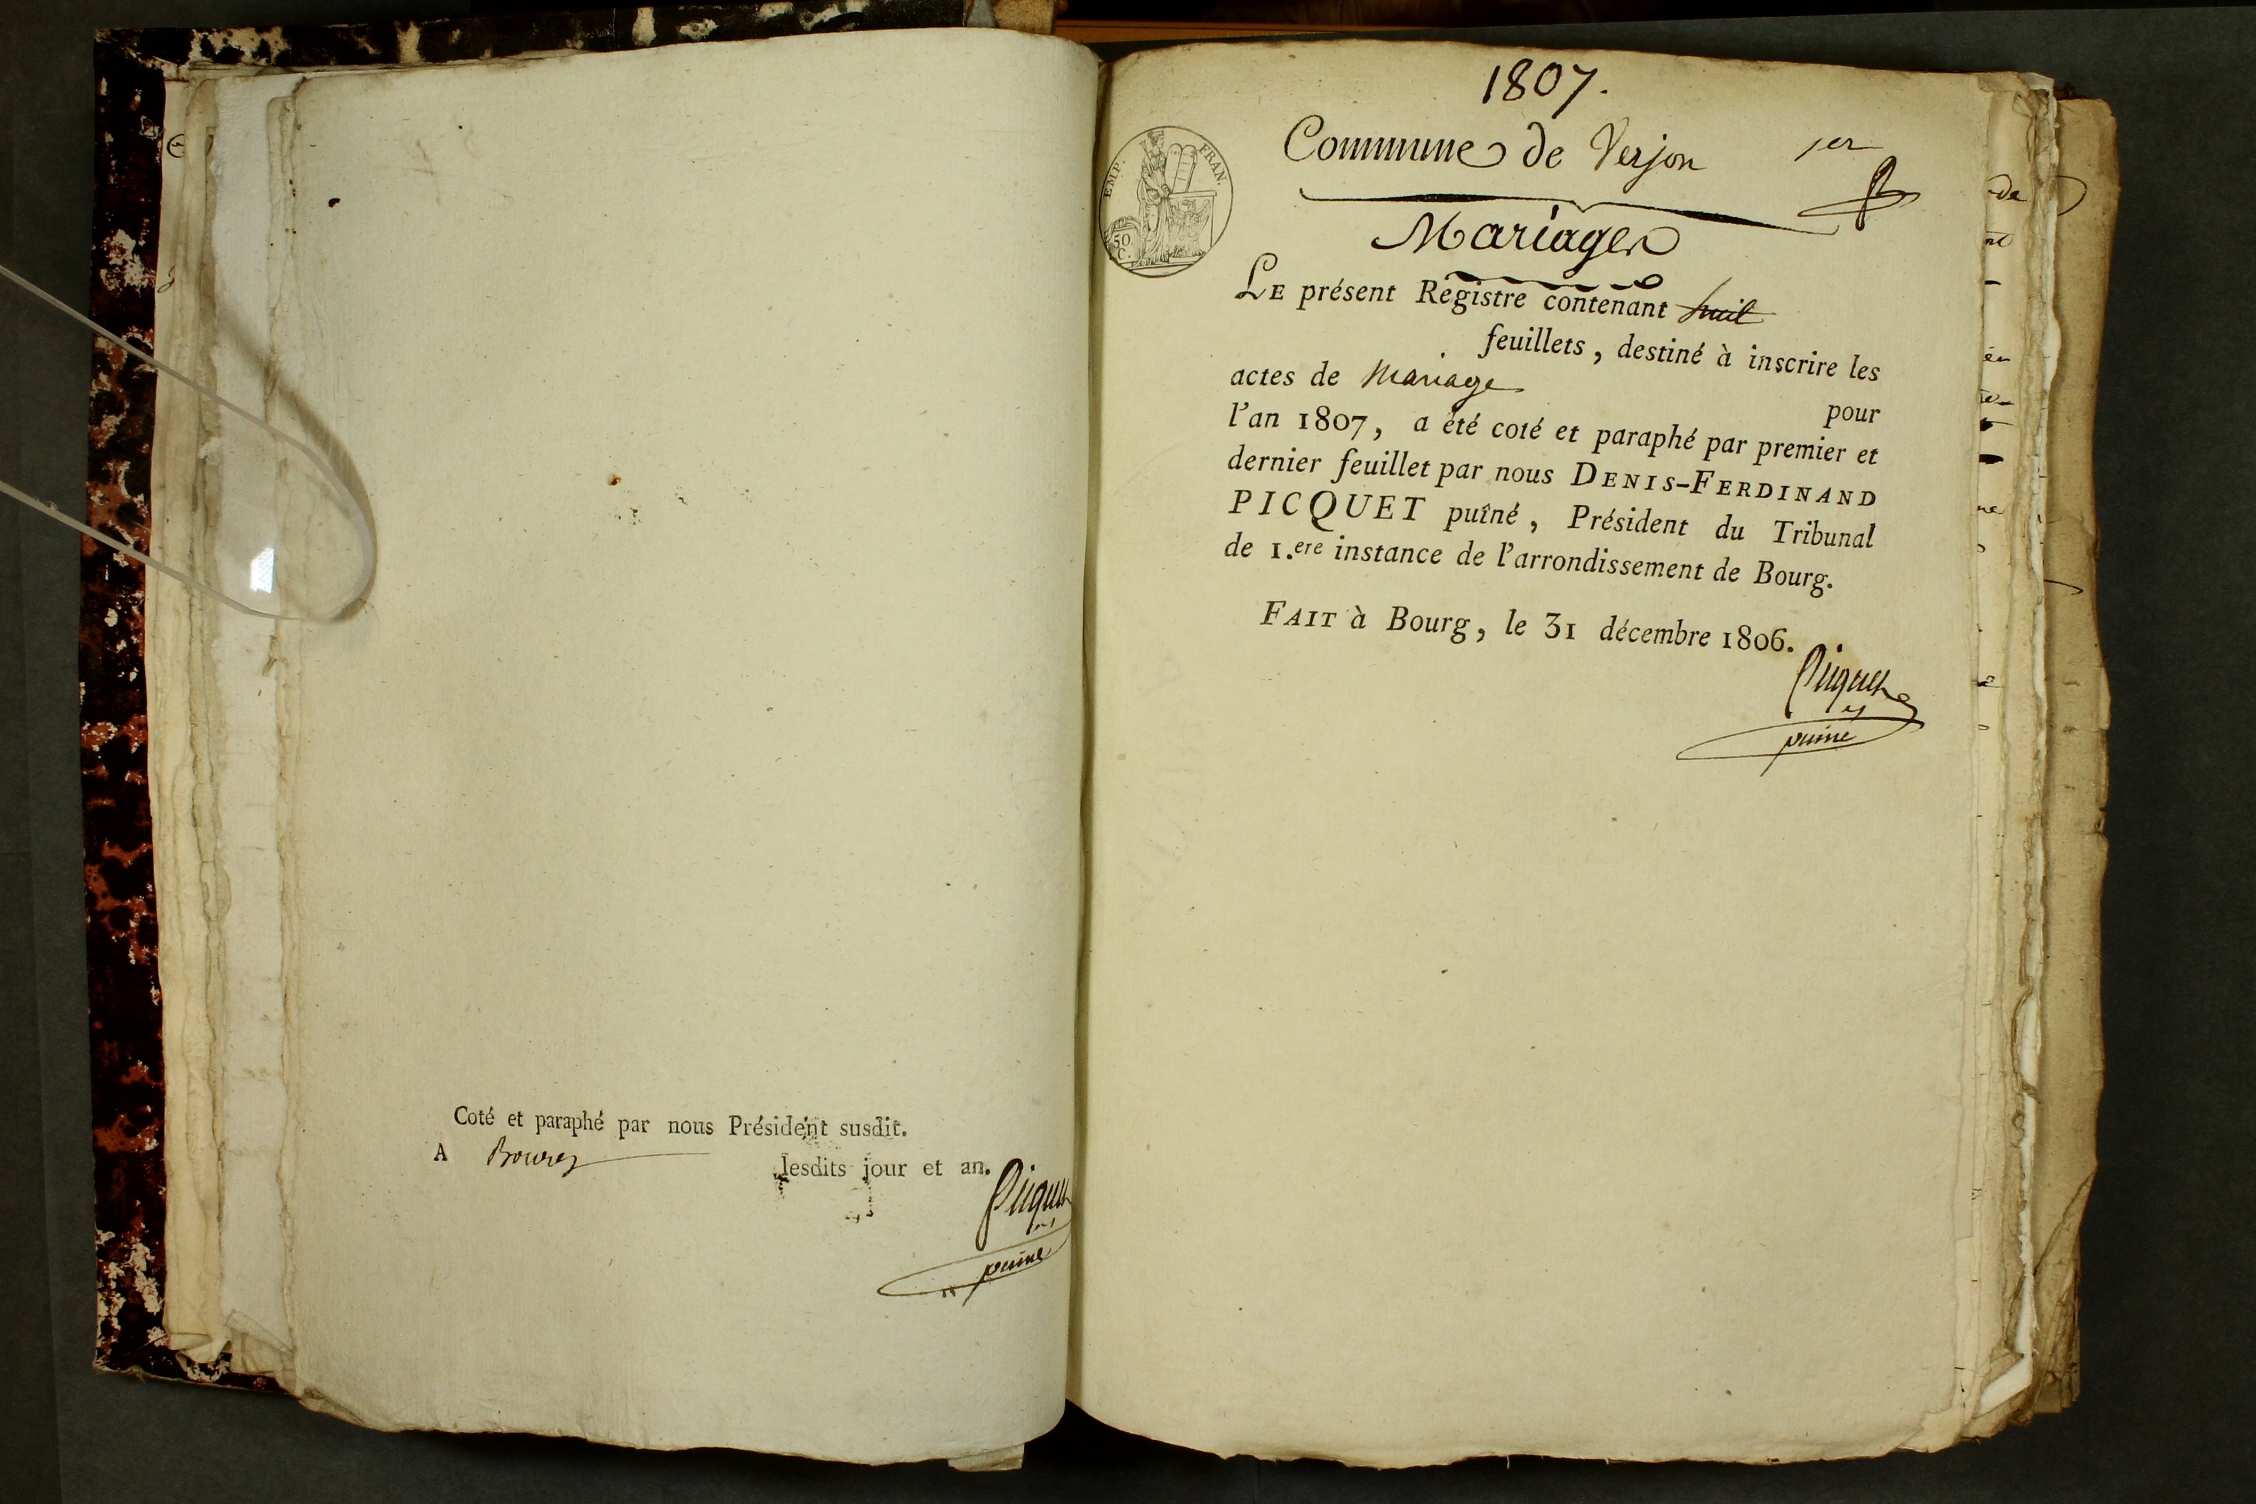 Coté et paraphé par nous Président susdit.
A Bourg lesdits jour et an.
Picquet
puiné
1807.
Commune de Verjon
1er
EMP. FRAN.
50
C.
Mariages
LE présent Registre contenant huit
feuillets, destiné à inscrire les
actes de Mariage
pour
l'an 1807, a été coté et paraphé par premier et
dernier feuillet par nous DENIS-FERDINAND
PICQUET puîné, Président du Tribunal
de 1.ere instance de l'arrondissement de Bourg.
FAIT à Bourg, le 31 décembre 1806.
Picquet
puiné